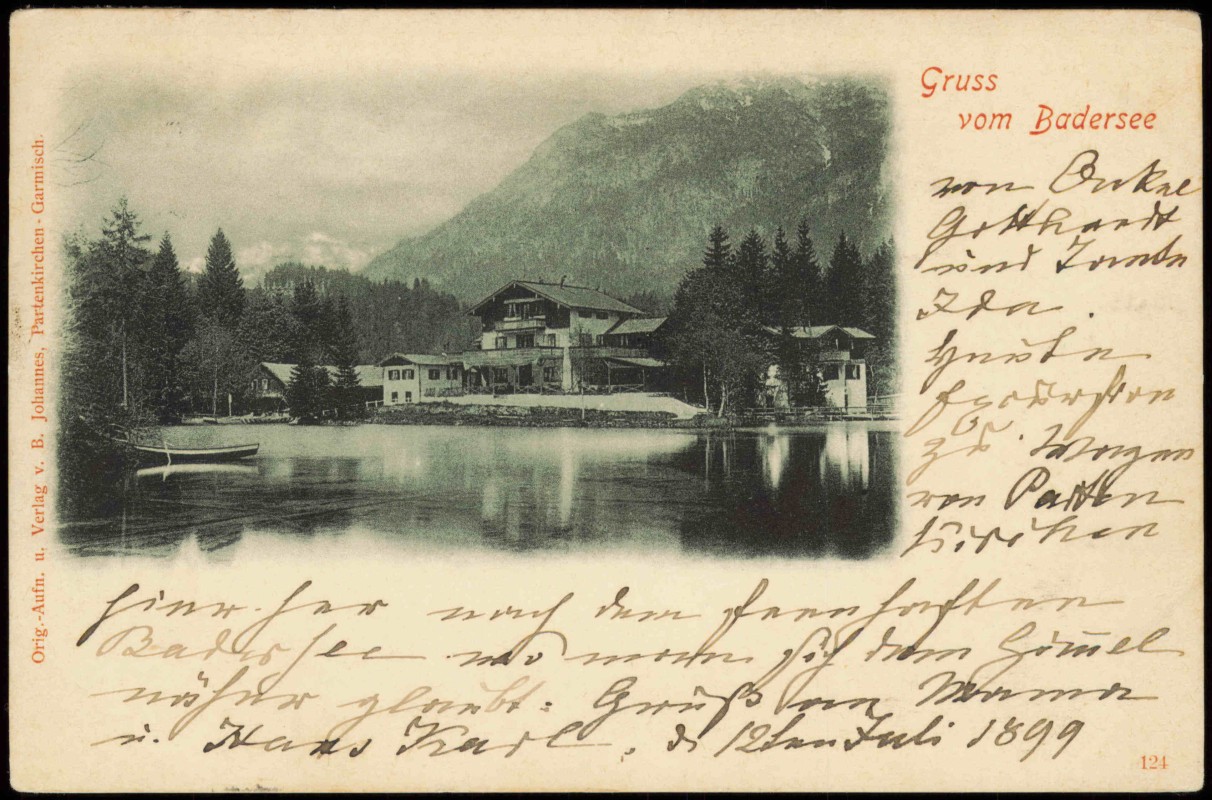 Gruss
vom Badersee
von Onkel
Gotthardt
und Tante
Ida.
Heute
Excursion
zu Wagen
von Parten
kirchen
hier her nach dem feenhaften
Badersee wo man sich dem Himmel
näher glaubt: Gruß an Mama
u. Hans Karl, d 12ten Juli 1899
Orig.-Aufn. u. Verlag v. B. Johannes, Partenkirchen-Garmisch.
124